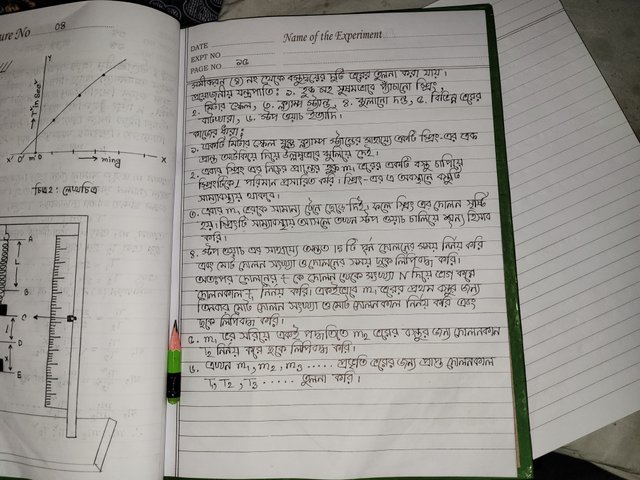 ure No 03
Y
T² in Sec²
X' O m X
ming
Y'
চিত্র 2: লেখচিত্র
A
L
B
C
l
D
x
E
Name of the Experiment
DATE
EXPT NO
PAGE NO ১৫
সমীকরণ (৪) নং থেকে বস্তুদ্বয়ের দুটি ভরের তুলনা করা যায়।
প্রয়োজনীয় যন্ত্রপাতি: ১. হুক সহ সুষমভাবে প্যাঁচানো স্প্রিং,
২. মিটার স্কেল, ৩. ক্ল্যাম্প স্ট্যান্ড, ৪. ঝুলানো দন্ড, ৫. বিভিন্ন ভরের
বাটখারা, ৬. স্টপ ওয়াচ ইত্যাদি।
কাজের ধারা:
১. একটি মিটার স্কেল যুক্ত ক্ল্যাম্প স্ট্যান্ডের সাহায্যে একটি স্প্রিং-এর এক
প্রান্ত আটকিয়ে দিয়ে উল্লম্বভাবে ঝুলিয়ে দেই।
২. এবার স্প্রিং এর নিচের প্রান্তের হুকে m₁ ভরের একটি বস্তু চাপিয়ে
স্প্রিংটিকে l পরিমান প্রসারিত করি। স্প্রিং-এর এ অবস্থানে বস্তুটি
সাম্যাবস্থায় থাকবে।
৩. এবার m₁ ভরকে সামান্য টেনে ছেড়ে দিই, ফলে স্প্রিং এর দোলন সৃষ্টি
হয়। স্প্রিংটি সাম্যাবস্থায় আসলে তখন স্টপ ওয়াচ চালিয়ে শূন্য হিসাব
করি।
৪. স্টপ ওয়াচ এর সাহায্যে অন্তত ১৫ টি পূর্ন দোলনের সময় নির্নয় করি
এবং মোট দোলন সংখ্যা ও দোলনের সময় ছকে লিপিবদ্ধ করি।
অতঃপর দোলনের t কে দোলন থেকে সংখ্যা N দিয়ে ভাগ করে
দোলনকাল T₁ নির্নয় করি। একইভাবে m₁ ভরের প্রথম বস্তুর জন্য
তিনবার মোট দোলন সংখ্যা ও মোট দোলনকাল নির্নয় করি এবং
ছকে লিপিবদ্ধ করি।
৫. m₁ ভর সরিয়ে একই পদ্ধতিতে m₂ ভরের বস্তুর জন্য দোলনকাল
T₂ নির্নয় করে ছকে লিপিবদ্ধ করি।
৬. এখন m₁, m₂, m₃ ..... প্রভৃতি ভরের জন্য প্রাপ্ত দোলনকাল
T₁, T₂, T₃ ...... তুলনা করি।